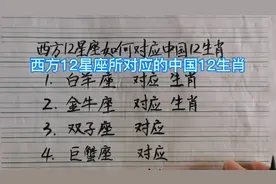 西方12星座如何对应中国12生肖
西方12星座所对应的中国12生肖
1. 白羊座 对应 生肖
2. 金牛座 对应 生肖
3. 双子座 对应
4. 巨蟹座 对应